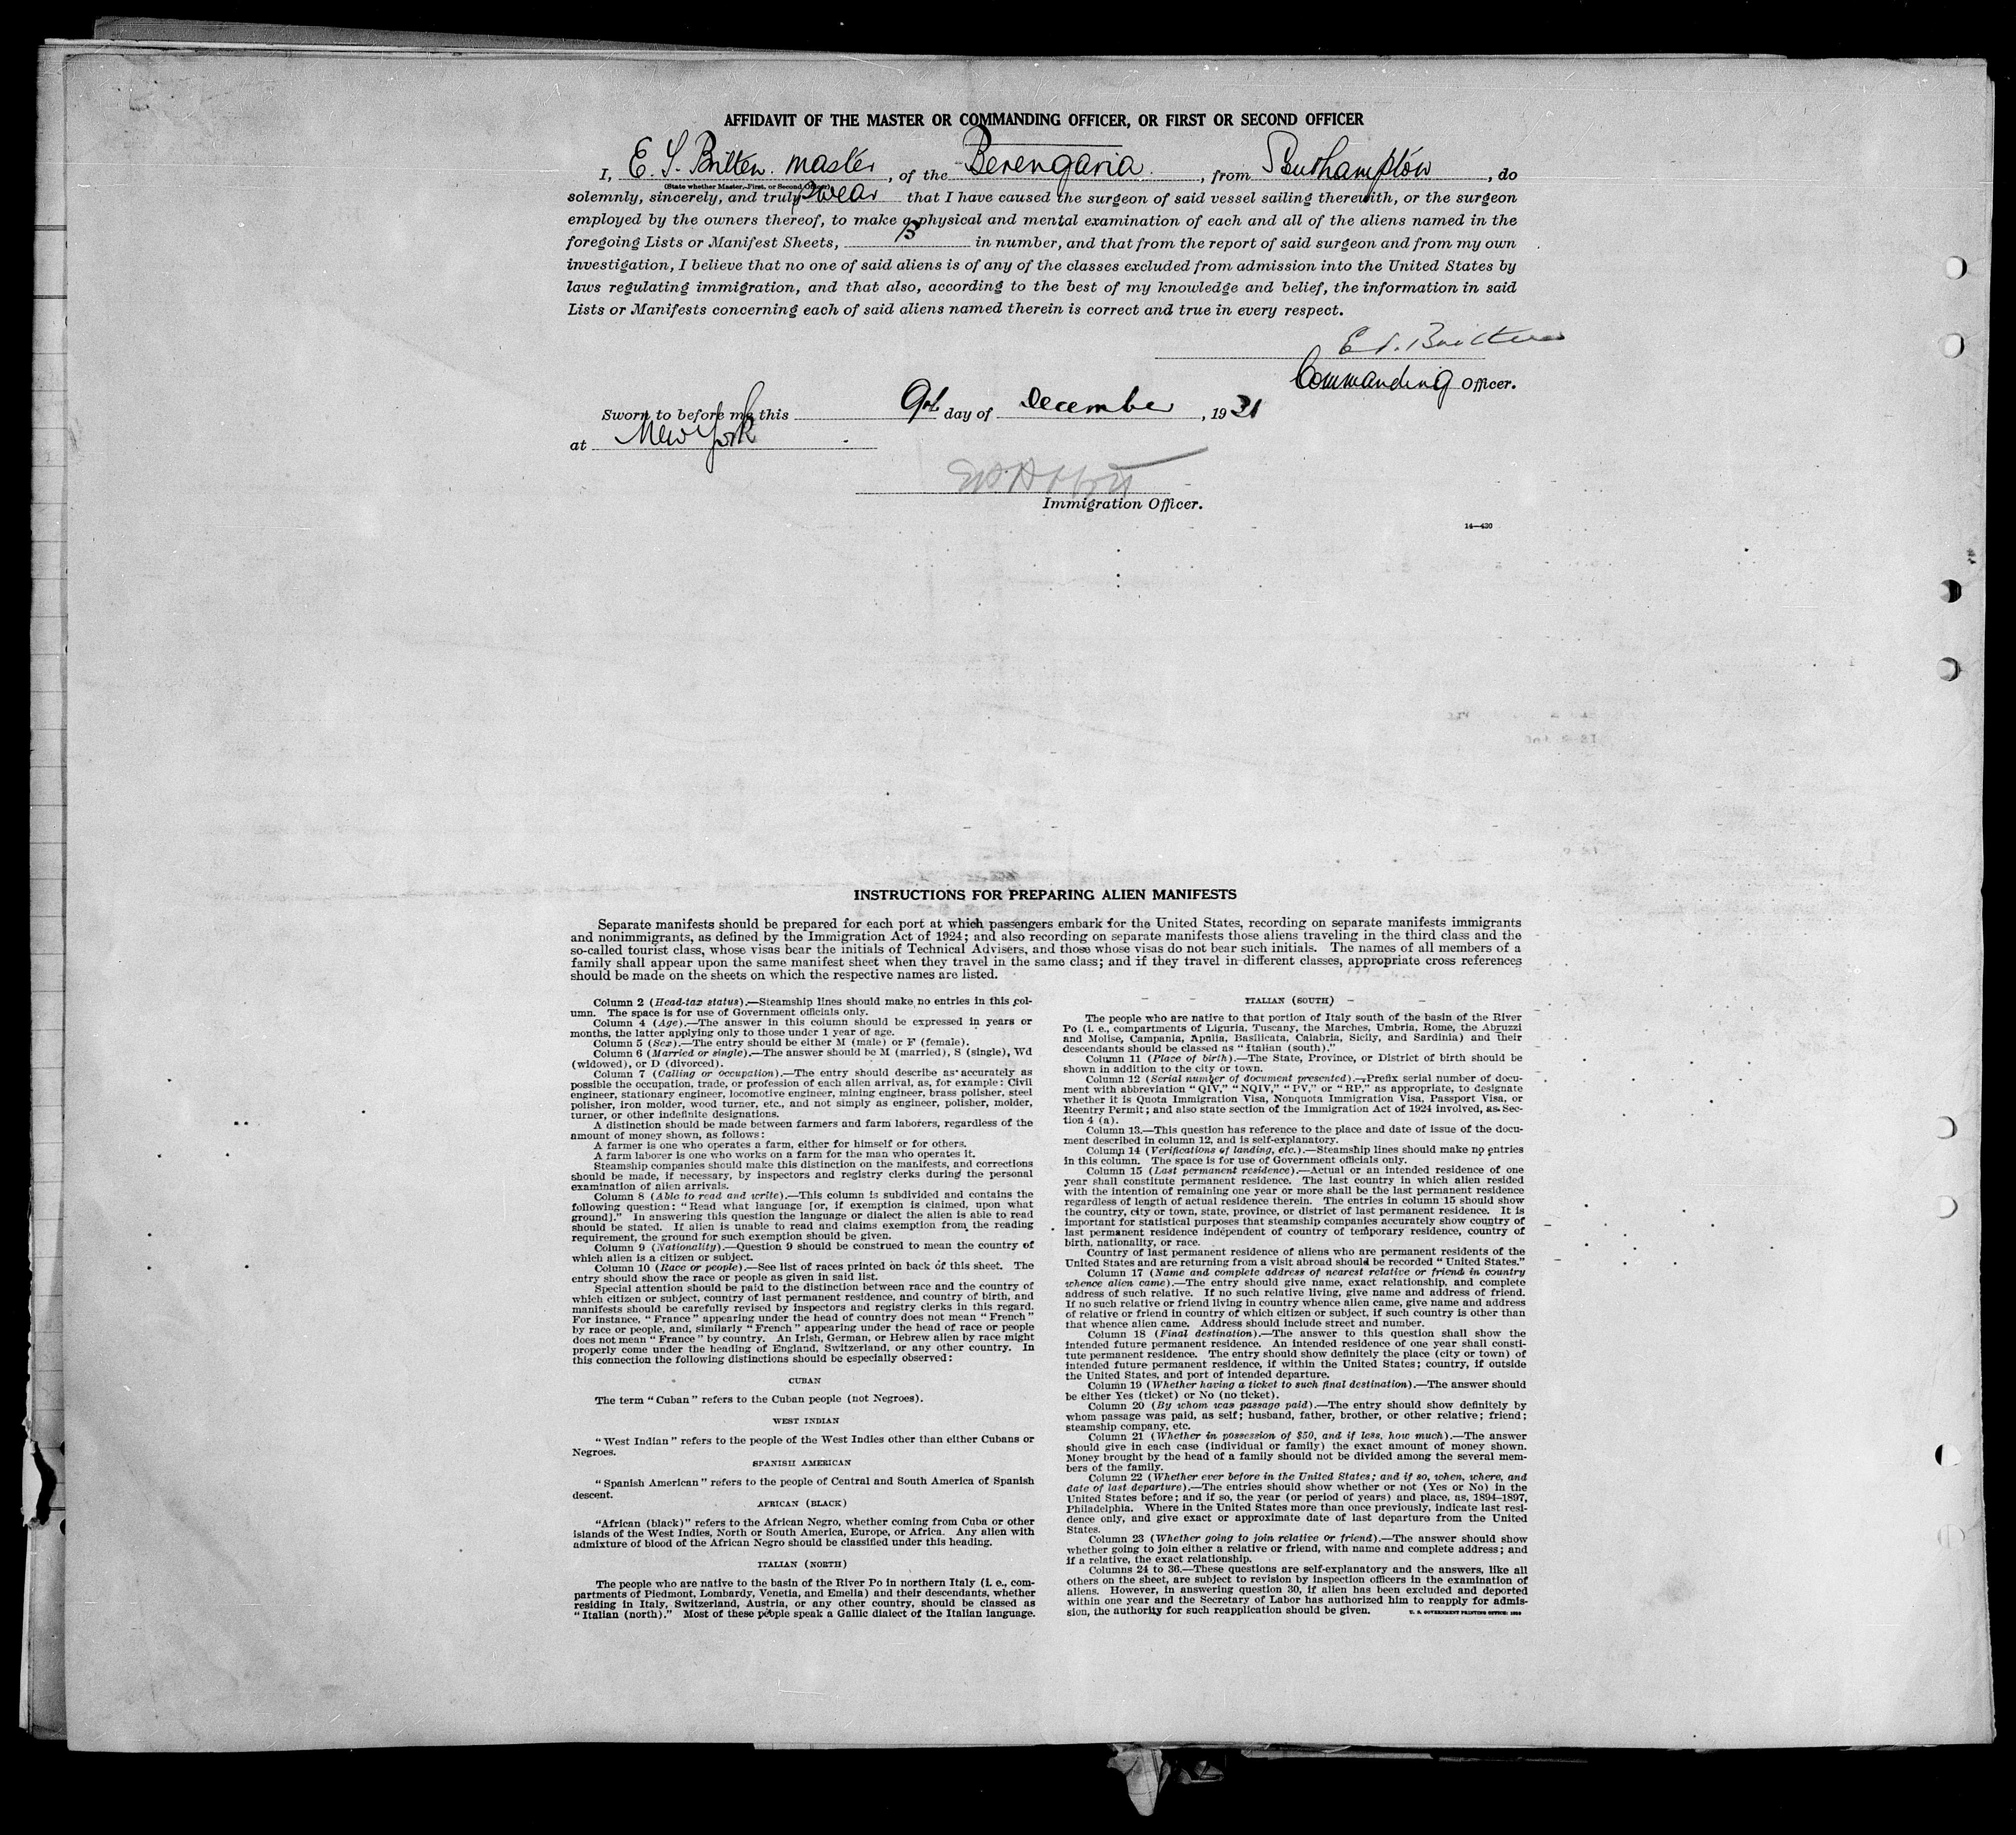 AFFIDAVIT OF THE MASTER OR COMMANDING OFFICER, OR FIRST OR SECOND OFFICER
I, E. S. Britten. master, of the Berengaria, from Southampton, do
(State whether Master, First, or Second Officer)
solemnly, sincerely, and truly swear that I have caused the surgeon of said vessel sailing therewith, or the surgeon
employed by the owners thereof, to make a physical and mental examination of each and all of the aliens named in the
foregoing Lists or Manifest Sheets, in number, and that from the report of said surgeon and from my own
investigation, I believe that no one of said aliens is of any of the classes excluded from admission into the United States by
laws regulating immigration, and that also, according to the best of my knowledge and belief, the information in said
Lists or Manifests concerning each of said aliens named therein is correct and true in every respect.
Britten
Commanding Officer.
Sworn to before me this 9th day of December, 1931
at New York
Immigration Officer.
14—430
INSTRUCTIONS FOR PREPARING ALIEN MANIFESTS
Separate manifests should be prepared for each port at which passengers embark for the United States, recording on separate manifests immigrants
and nonimmigrants, as defined by the Immigration Act of 1924; and also recording on separate manifests those aliens traveling in the third class and the
so-called tourist class, whose visas bear the initials of Technical Advisers, and those whose visas do not bear such initials. The names of all members of a
family shall appear upon the same manifest sheet when they travel in the same class; and if they travel in different classes, appropriate cross references
should be made on the sheets on which the respective names are listed.
Column 2 (Head-tax status).—Steamship lines should make no entries in this col-
umn. The space is for use of Government officials only.
Column 4 (Age).—The answer in this column should be expressed in years or
months, the latter applying only to those under 1 year of age.
Column 5 (Sex).—The entry should be either M (male) or F (female).
Column 6 (Married or single).—The answer should be M (married), S (single), Wd
(widowed), or D (divorced).
Column 7 (Calling or occupation).—The entry should describe as accurately as
possible the occupation, trade, or profession of each alien arrival, as, for example: Civil
engineer, stationary engineer, locomotive engineer, mining engineer, brass polisher, steel
polisher, iron molder, wood turner, etc., and not simply as engineer, polisher, molder,
turner, or other indefinite designations.
A distinction should be made between farmers and farm laborers, regardless of the
amount of money shown, as follows:
A farmer is one who operates a farm, either for himself or for others.
A farm laborer is one who works on a farm for the man who operates it.
Steamship companies should make this distinction on the manifests, and corrections
should be made, if necessary, by inspectors and registry clerks during the personal
examination of alien arrivals.
Column 8 (Able to read and write).—This column is subdivided and contains the
following question: “Read what language [or, if exemption is claimed, upon what
ground].” In answering this question the language or dialect the alien is able to read
should be stated. If alien is unable to read and claims exemption from the reading
requirement, the ground for such exemption should be given.
Column 9 (Nationality).—Question 9 should be construed to mean the country of
which alien is a citizen or subject.
Column 10 (Race or people).—See list of races printed on back of this sheet. The
entry should show the race or people as given in said list.
Special attention should be paid to the distinction between race and the country of
which citizen or subject, country of last permanent residence, and country of birth, and
manifests should be carefully revised by inspectors and registry clerks in this regard.
For instance, “France” appearing under the head of country does not mean “French”
by race or people, and, similarly “French” appearing under the head of race or people
does not mean “France” by country. An Irish, German, or Hebrew alien by race might
properly come under the heading of England, Switzerland, or any other country. In
this connection the following distinctions should be especially observed:
CUBAN
The term “Cuban” refers to the Cuban people (not Negroes).
WEST INDIAN
“West Indian” refers to the people of the West Indies other than either Cubans or
Negroes.
SPANISH AMERICAN
“Spanish American” refers to the people of Central and South America of Spanish
descent.
AFRICAN (BLACK)
“African (black)” refers to the African Negro, whether coming from Cuba or other
islands of the West Indies, North or South America, Europe, or Africa. Any alien with
admixture of blood of the African Negro should be classified under this heading.
ITALIAN (NORTH)
The people who are native to the basin of the River Po in northern Italy (i. e., com-
partments of Piedmont, Lombardy, Venetia, and Emelia) and their descendants, whether
residing in Italy, Switzerland, Austria, or any other country, should be classed as
“Italian (north).” Most of these people speak a Gallic dialect of the Italian language.
ITALIAN (SOUTH)
The people who are native to that portion of Italy south of the basin of the River
Po (i. e., compartments of Liguria, Tuscany, the Marches, Umbria, Rome, the Abruzzi
and Molise, Campania, Apulia, Basilicata, Calabria, Sicily, and Sardinia) and their
descendants should be classed as “Italian (south).”
Column 11 (Place of birth).—The State, Province, or District of birth should be
shown in addition to the city or town.
Column 12 (Serial number of document presented).—Prefix serial number of docu-
ment with abbreviation “QIV,” “NQIV,” “PV,” or “RP,” as appropriate, to designate
whether it is Quota Immigration Visa, Nonquota Immigration Visa, Passport Visa, or
Reentry Permit; and also state section of the Immigration Act of 1924 involved, as Sec-
tion 4 (a).
Column 13.—This question has reference to the place and date of issue of the docu-
ment described in column 12, and is self-explanatory.
Column 14 (Verifications of landing, etc.).—Steamship lines should make no entries
in this column. The space is for use of Government officials only.
Column 15 (Last permanent residence).—Actual or an intended residence of one
year shall constitute permanent residence. The last country in which alien resided
with the intention of remaining one year or more shall be the last permanent residence
regardless of length of actual residence therein. The entries in column 15 should show
the country, city or town, state, province, or district of last permanent residence. It is
important for statistical purposes that steamship companies accurately show country of
last permanent residence independent of country of temporary residence, country of
birth, nationality, or race.
Country of last permanent residence of aliens who are permanent residents of the
United States and are returning from a visit abroad should be recorded “United States.”
Column 17 (Name and complete address of nearest relative or friend in country
whence alien came).—The entry should give name, exact relationship, and complete
address of such relative. If no such relative living, give name and address of friend.
If no such relative or friend living in country whence alien came, give name and address
of relative or friend in country of which citizen or subject, if such country is other than
that whence alien came. Address should include street and number.
Column 18 (Final destination).—The answer to this question shall show the
intended future permanent residence. An intended residence of one year shall consti-
tute permanent residence. The entry should show definitely the place (city or town) of
intended future permanent residence, if within the United States; country, if outside
the United States, and port of intended departure.
Column 19 (Whether having a ticket to such final destination).—The answer should
be either Yes (ticket) or No (no ticket).
Column 20 (By whom was passage paid).—The entry should show definitely by
whom passage was paid, as self; husband, father, brother, or other relative; friend;
steamship company, etc.
Column 21 (Whether in possession of $50, and if less, how much).—The answer
should give in each case (individual or family) the exact amount of money shown.
Money brought by the head of a family should not be divided among the several mem-
bers of the family.
Column 22 (Whether ever before in the United States; and if so, when, where, and
date of last departure).—The entries should show whether or not (Yes or No) in the
United States before; and if so, the year (or period of years) and place, as, 1894–1897,
Philadelphia. Where in the United States more than once previously, indicate last resi-
dence only, and give exact or approximate date of last departure from the United
States.
Column 23 (Whether going to join relative or friend).—The answer should show
whether going to join either a relative or friend, with name and complete address; and
if a relative, the exact relationship.
Columns 24 to 36.—These questions are self-explanatory and the answers, like all
others on the sheet, are subject to revision by inspection officers in the examination of
aliens. However, in answering question 30, if alien has been excluded and deported
within one year and the Secretary of Labor has authorized him to reapply for admis-
sion, the authority for such reapplication should be given. U. S. GOVERNMENT PRINTING OFFICE: